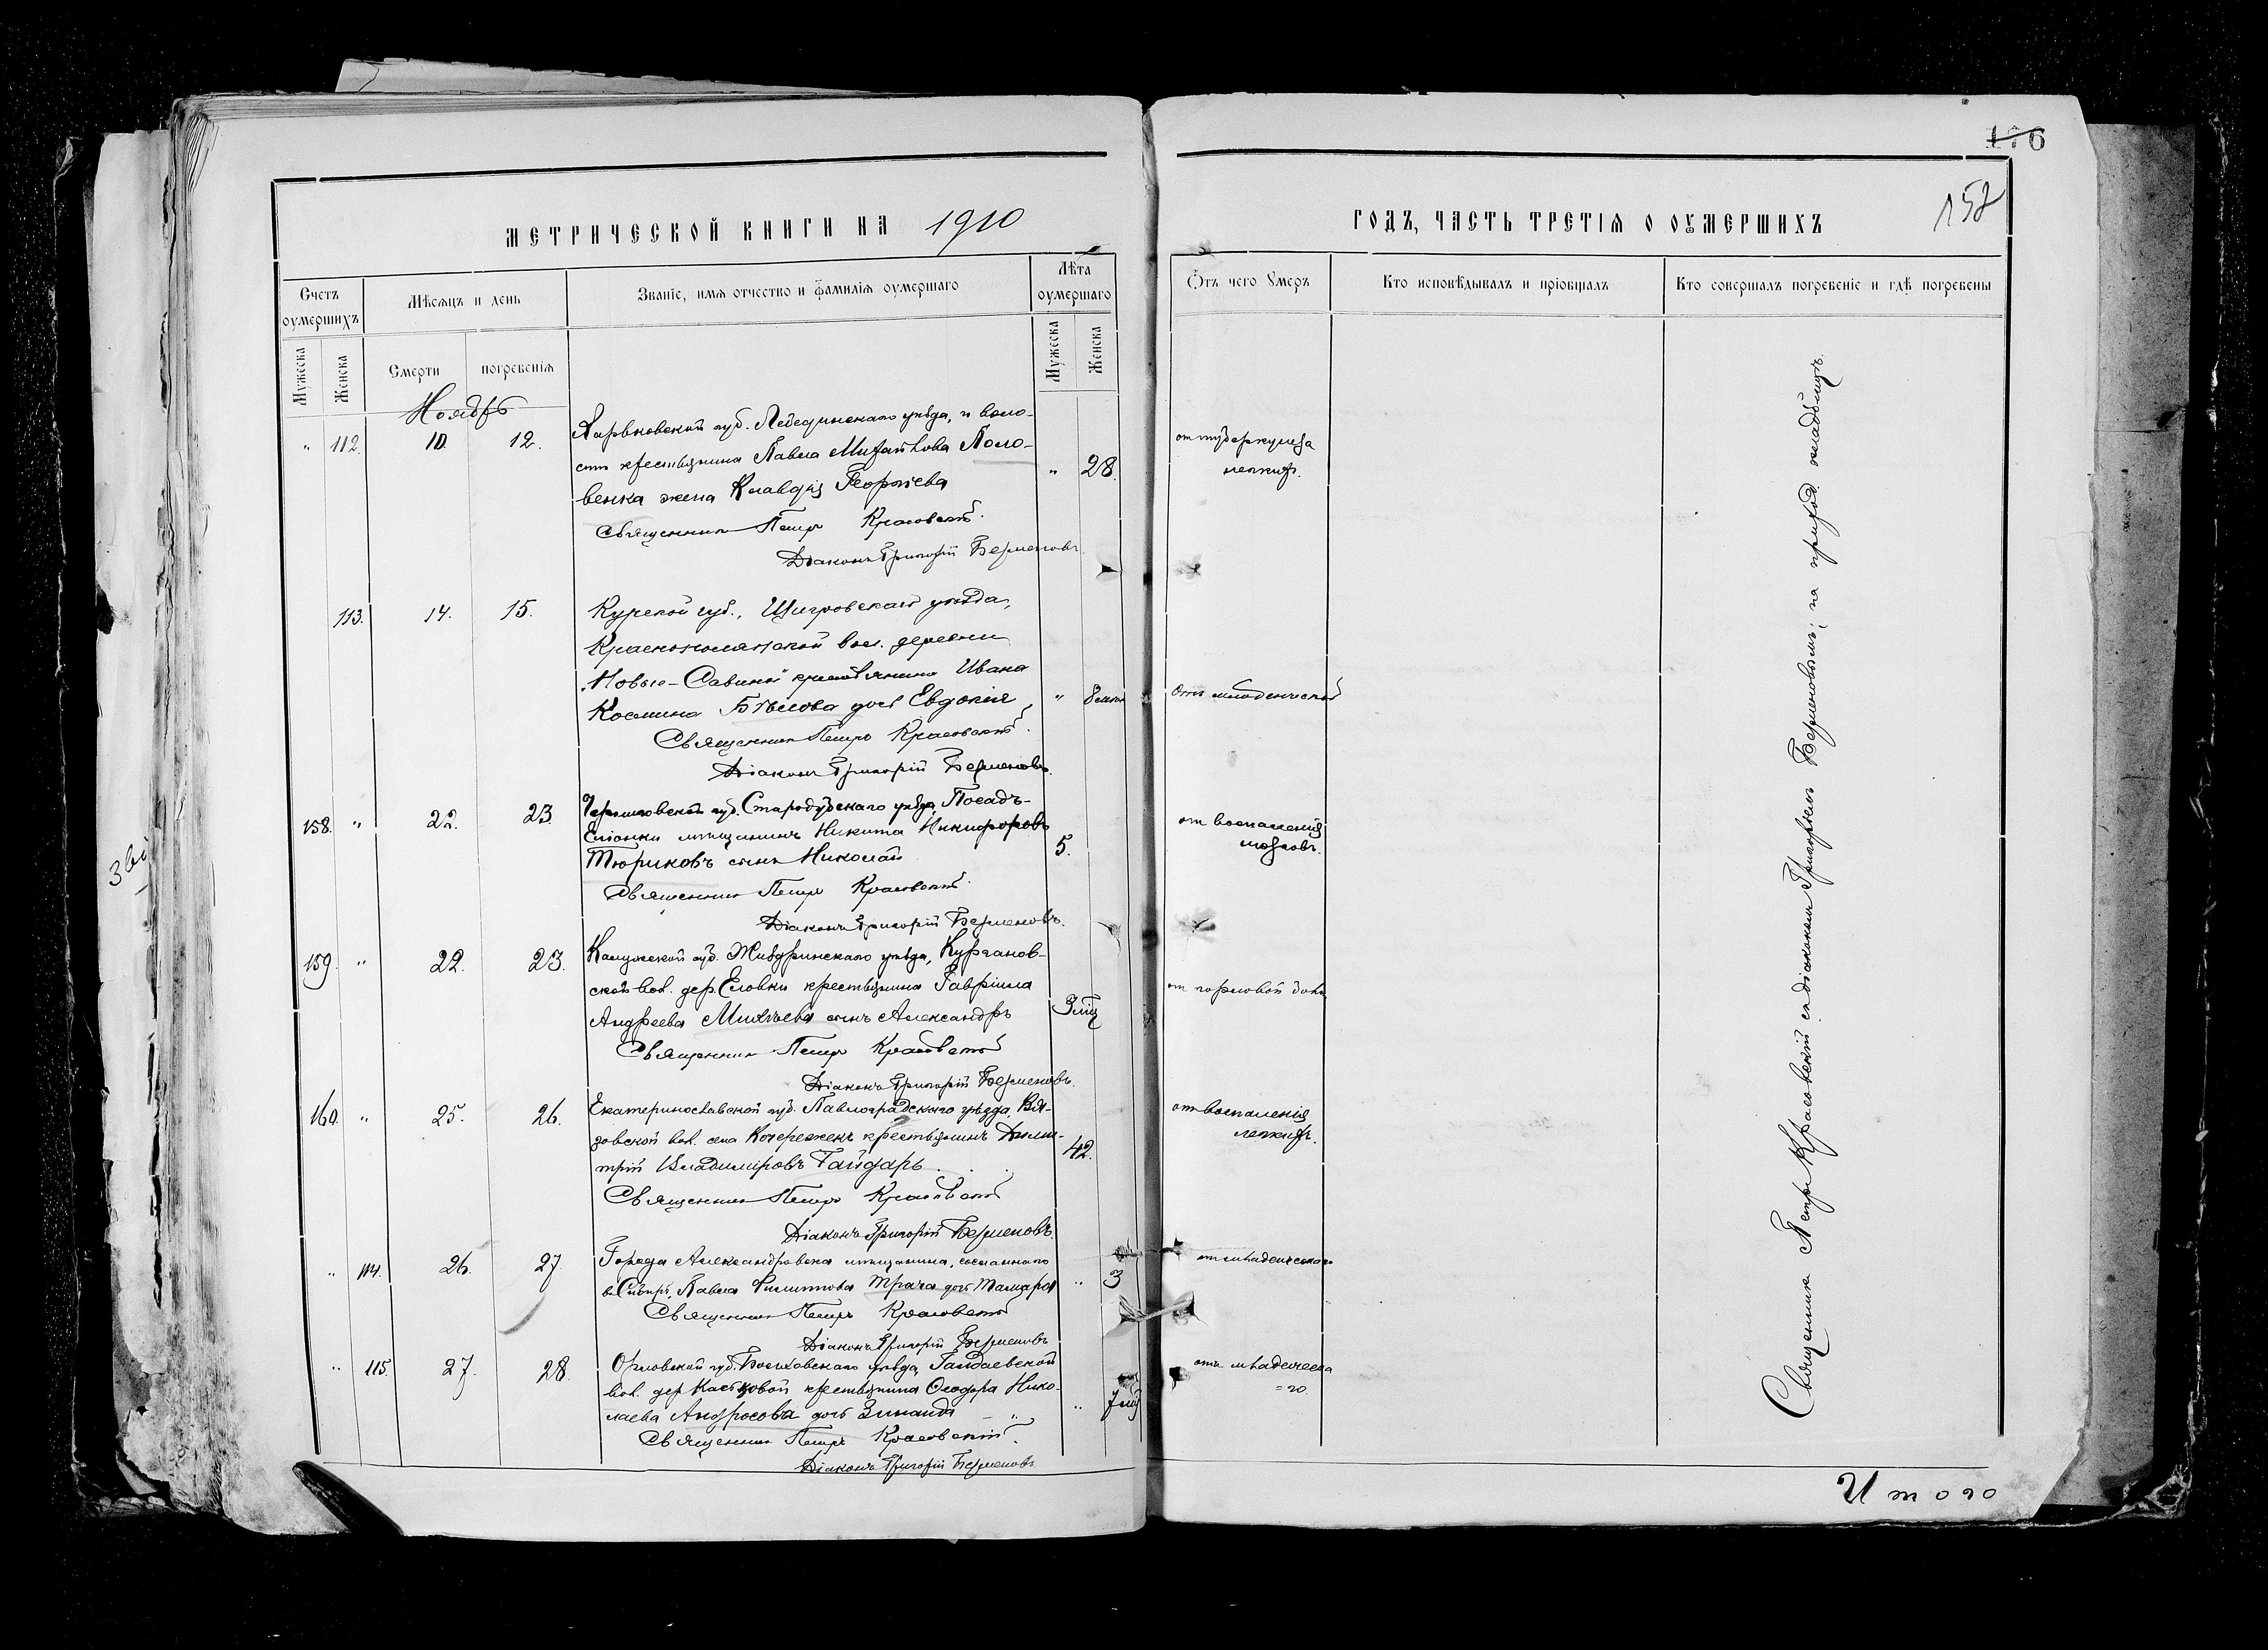 МЕТРИЧЕСКОЙ КНИГИ НА 1910
ГОДЪ, ЧАСТЬ ТРЕТІЯ О ОУМЕРШИХЪ
176
152
Счетъ оумершихъ
Мѣсяцъ и день
Званіе, имя отчество и фамилія оумершаго
Лѣта оумершаго
Отъ чего Умеръ
Кто исповѣдывалъ и пріобщалъ
Кто совершалъ погребеніе и гдѣ погребены
Мужеска
Женска
Смерти
погребенія
Мужеска
Женска
Ноябрь
" 112. 10 12.
Харьковской губ. Лебединскаго уѣзда, и воло-
сти крестьянина Павла Михайлова Поло-
венка жена Клавдія Георгіева
" 28.
от туберкулеза
легкихъ.
Священникъ Петръ Красовскій.
Діаконъ Григорій Берменовъ.
113. 14. 15.
Курской губ., Щигровскаго уѣзда,
Краснополянской вол. деревни
"Новые-Савины" крестьянина Ивана
Космина Бѣлова дочь Евдокія,
"
Отъ младенческой
Священникъ Петръ Красовскій.
Діаконъ Григорій Берменовъ.
158. " 22. 23.
Черниговской губ. Стародубскаго уѣзда, Посадъ-
Еліонки мѣщанинъ Никита Никифоровъ
Тюриковъ сынъ Николай
5.
от воспаленія
мозговъ.
Священникъ Петръ Красовскій.
Діаконъ Григорій Берменовъ.
159. " 22. 23.
Калужской губ. Жиздринскаго уѣзда, Курганов-
ской вол. дер. Еловки крестьянина Гавріила
Андреева Михѣева сынъ Александръ
3 мц
от горловой боли
Священникъ Петръ Красовскій
Діаконъ Григорій Берменовъ.
160. " 25. 26.
Екатеринославской губ. Павлоградскаго уѣзда, Вя-
зовской вол. села Кочережекъ крестьянинъ Дими-
трій Владиміровъ Гайдаръ
42.
от воспаленія
легкихъ.
Священникъ Петръ Красовскій
Діаконъ Григорій Берменовъ.
" 114. 26. 27.
Города Александровска мѣщанина, сосланнаго
въ Сибирь, Павла Филиппова Трача дочь Тамара
" 3
от младенческаго
Священникъ Петръ Красовскій
Діаконъ Григорій Берменовъ
" 115. 27. 28.
Орловской губ. Болховскаго уѣзда,
вол. дер. крестьянина Ѳеодора Нико-
лаева Андросова дочь Зинаида
" 7 мц
отъ младенческа
=го.
Священникъ Петръ Красовскій.
Діаконъ Григорій Берменовъ
Священникъ Петръ Красовскій съ діакономъ Григоріемъ Берменовымъ; на приход. кладбищѣ.
Итого